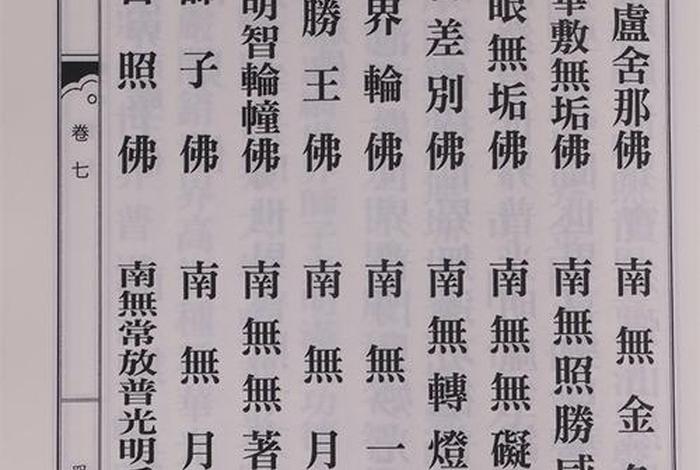 盧舍那佛 南無金
敷無垢佛 南無照勝威
眼無垢佛 南無無礙
差別佛 南無轉燈
界輪佛 南無一
勝王佛 南無月
明智輪幢佛 南無無著
師子佛 南無月
照佛 南無常放普光明
卷七